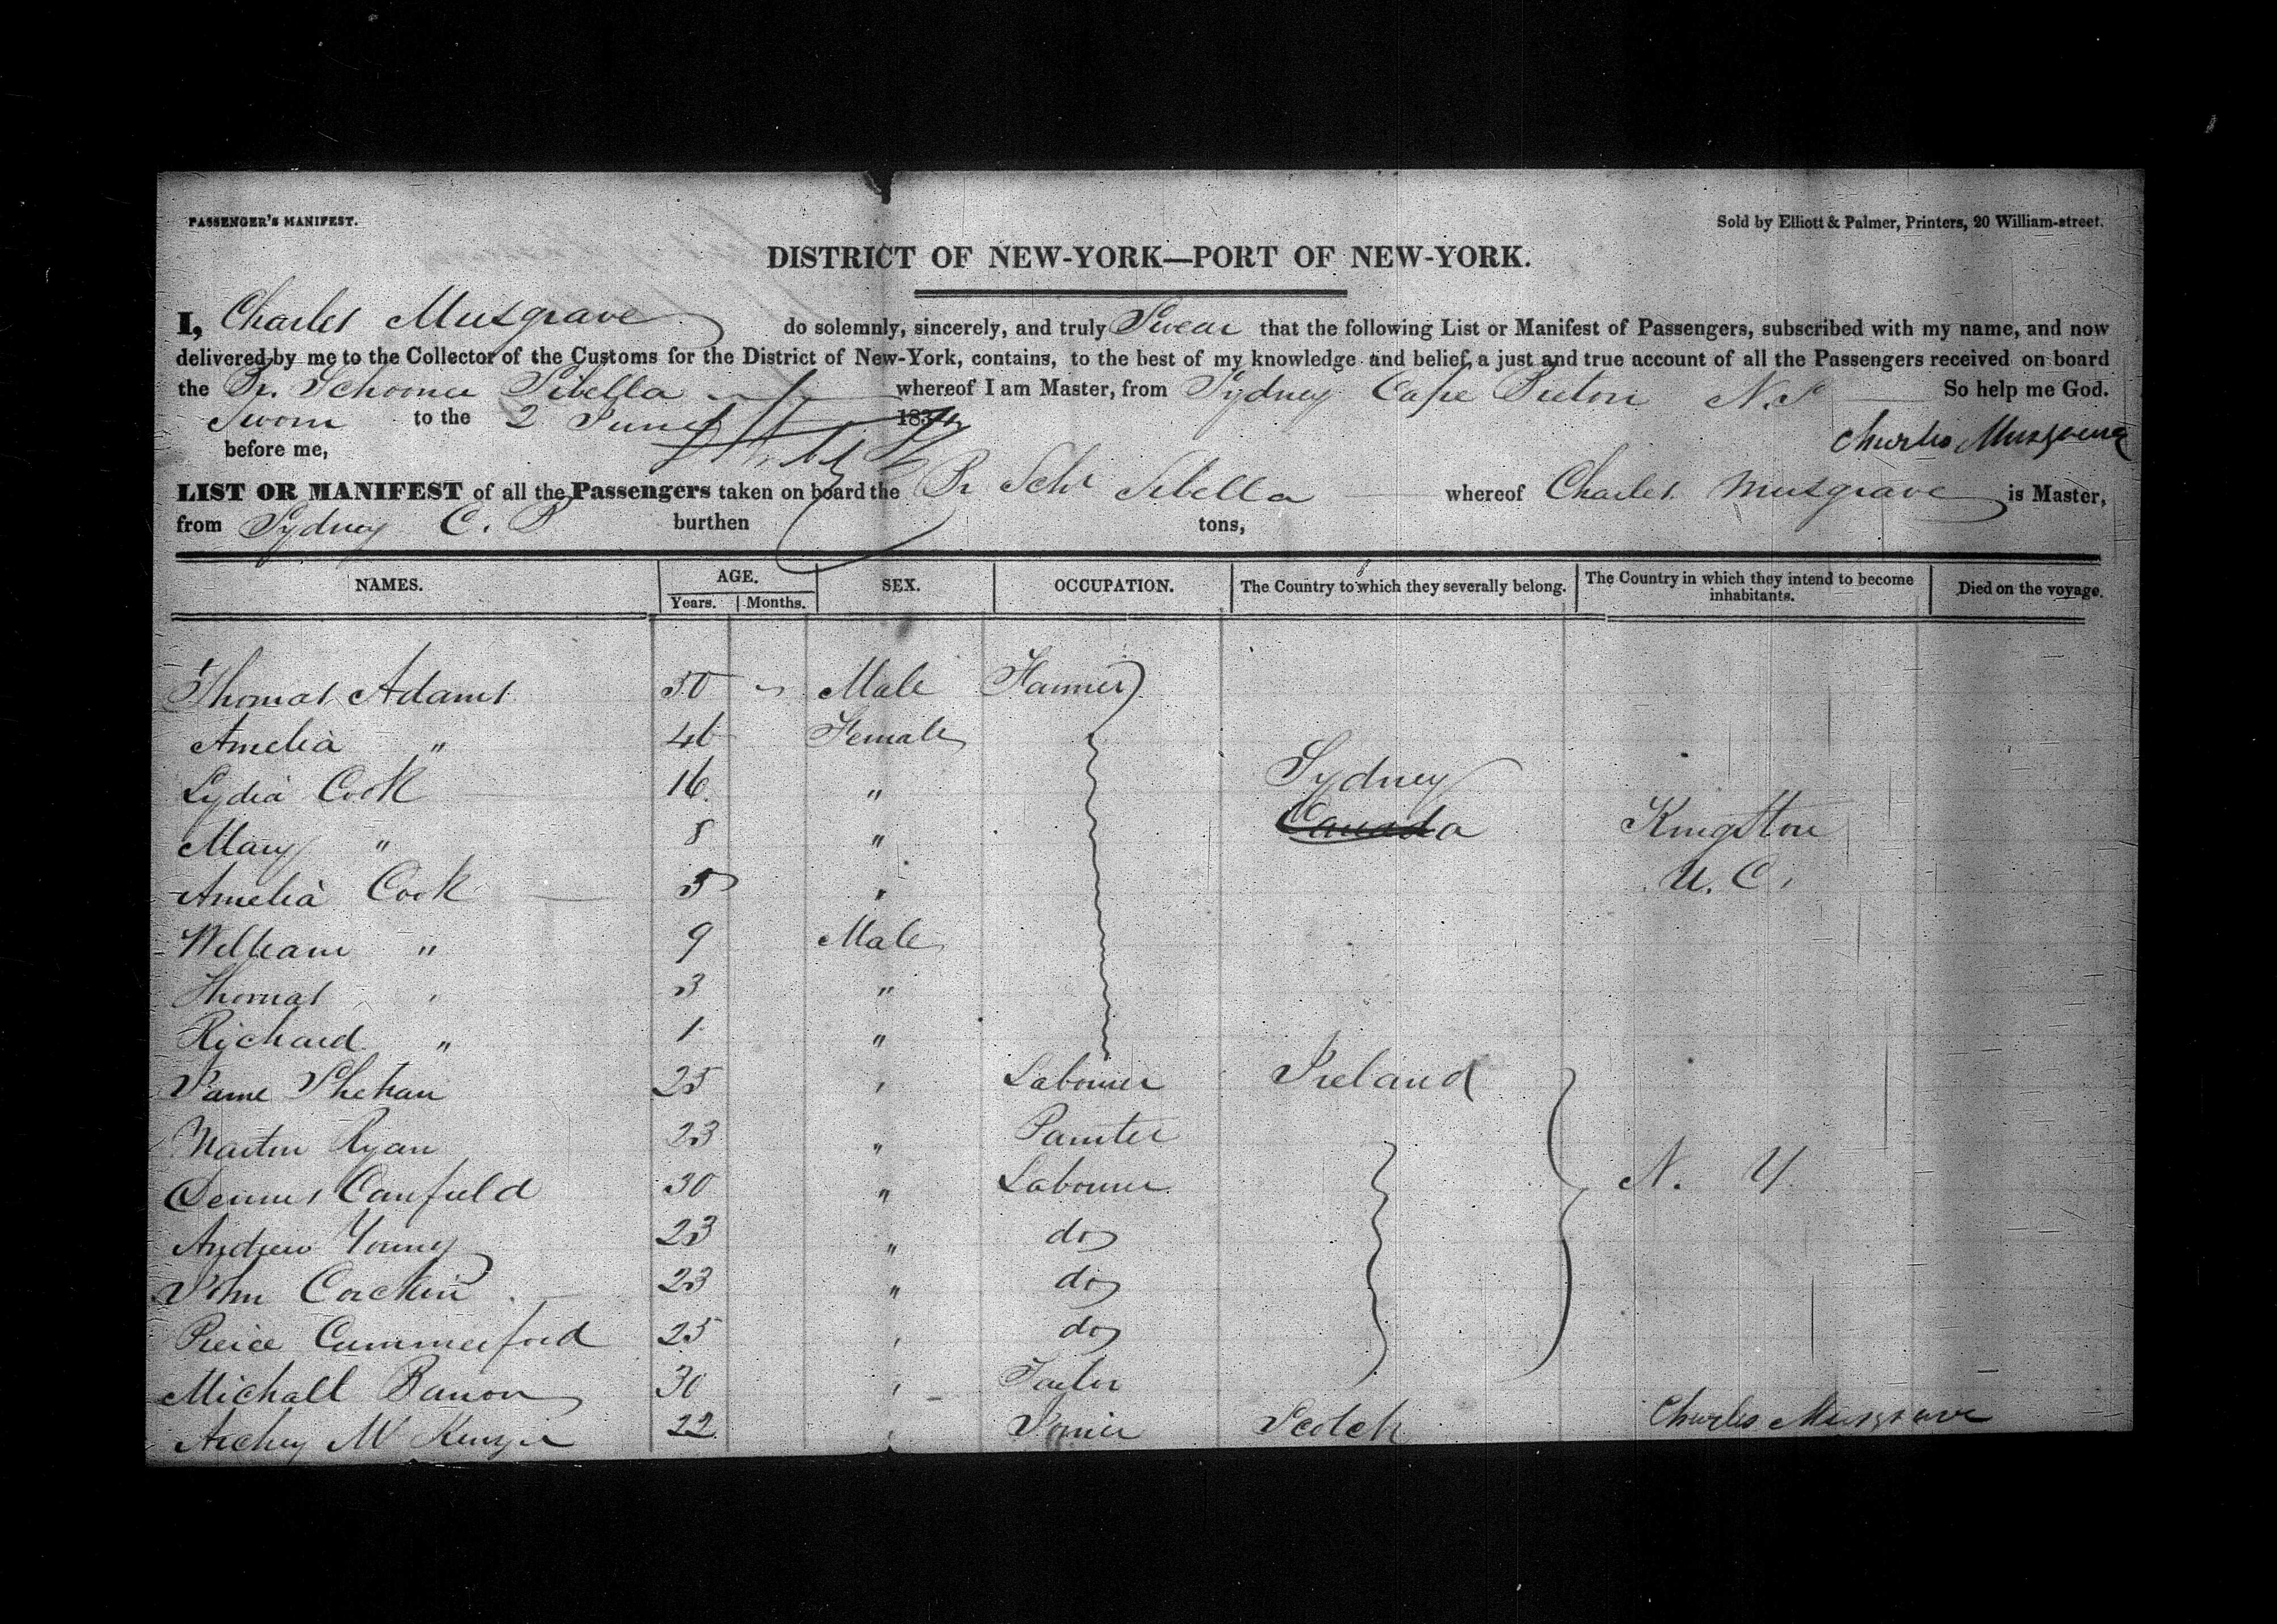 PASSENGER'S MANIFEST.
Sold by Elliott & Palmer, Printers, 20 William-street.
DISTRICT OF NEW-YORK—PORT OF NEW-YORK.
I, Charles Musgrave do solemnly, sincerely, and truly Swear that the following List or Manifest of Passengers, subscribed with my name, and now
delivered by me to the Collector of the Customs for the District of New-York, contains, to the best of my knowledge and belief, a just and true account of all the Passengers received on board
the Br. Schooner Sibella whereof I am Master, from Sydney Cape Breton N.S So help me God.
Sworn to the 2 June 1834
Charles Musgrave
before me,
LIST OR MANIFEST of all the Passengers taken on board the Br Schr Sibella whereof Charles Musgrave is Master,
from Sydney C. B burthen tons,
NAMES. AGE. SEX. OCCUPATION. The Country to which they severally belong. The Country in which they intend to become inhabitants. Died on the voyage.
Years. Months.
Thomas Adams 50 Male Farmer
Amelia " 46 Female
Lydia Cook 16 " Sydney
Mary " 8 " Canada Kingston
Amelia Cook 5 " U. C.
William " 9 Male
Thomas " 3 "
Richard " 1 "
Jame Shehan 25 " Labourer Ireland
Martin Ryan 23 " Painter
Dennis Canfield 30 " Labourer N. Y.
Andrew Young 23 " do
John Corckin 23 " do
Peirce Cummerford 25 " do
Michall Barron 30 " Taylor
Archey McKenzie 22 " Joiner Scotch Charles Musgrave